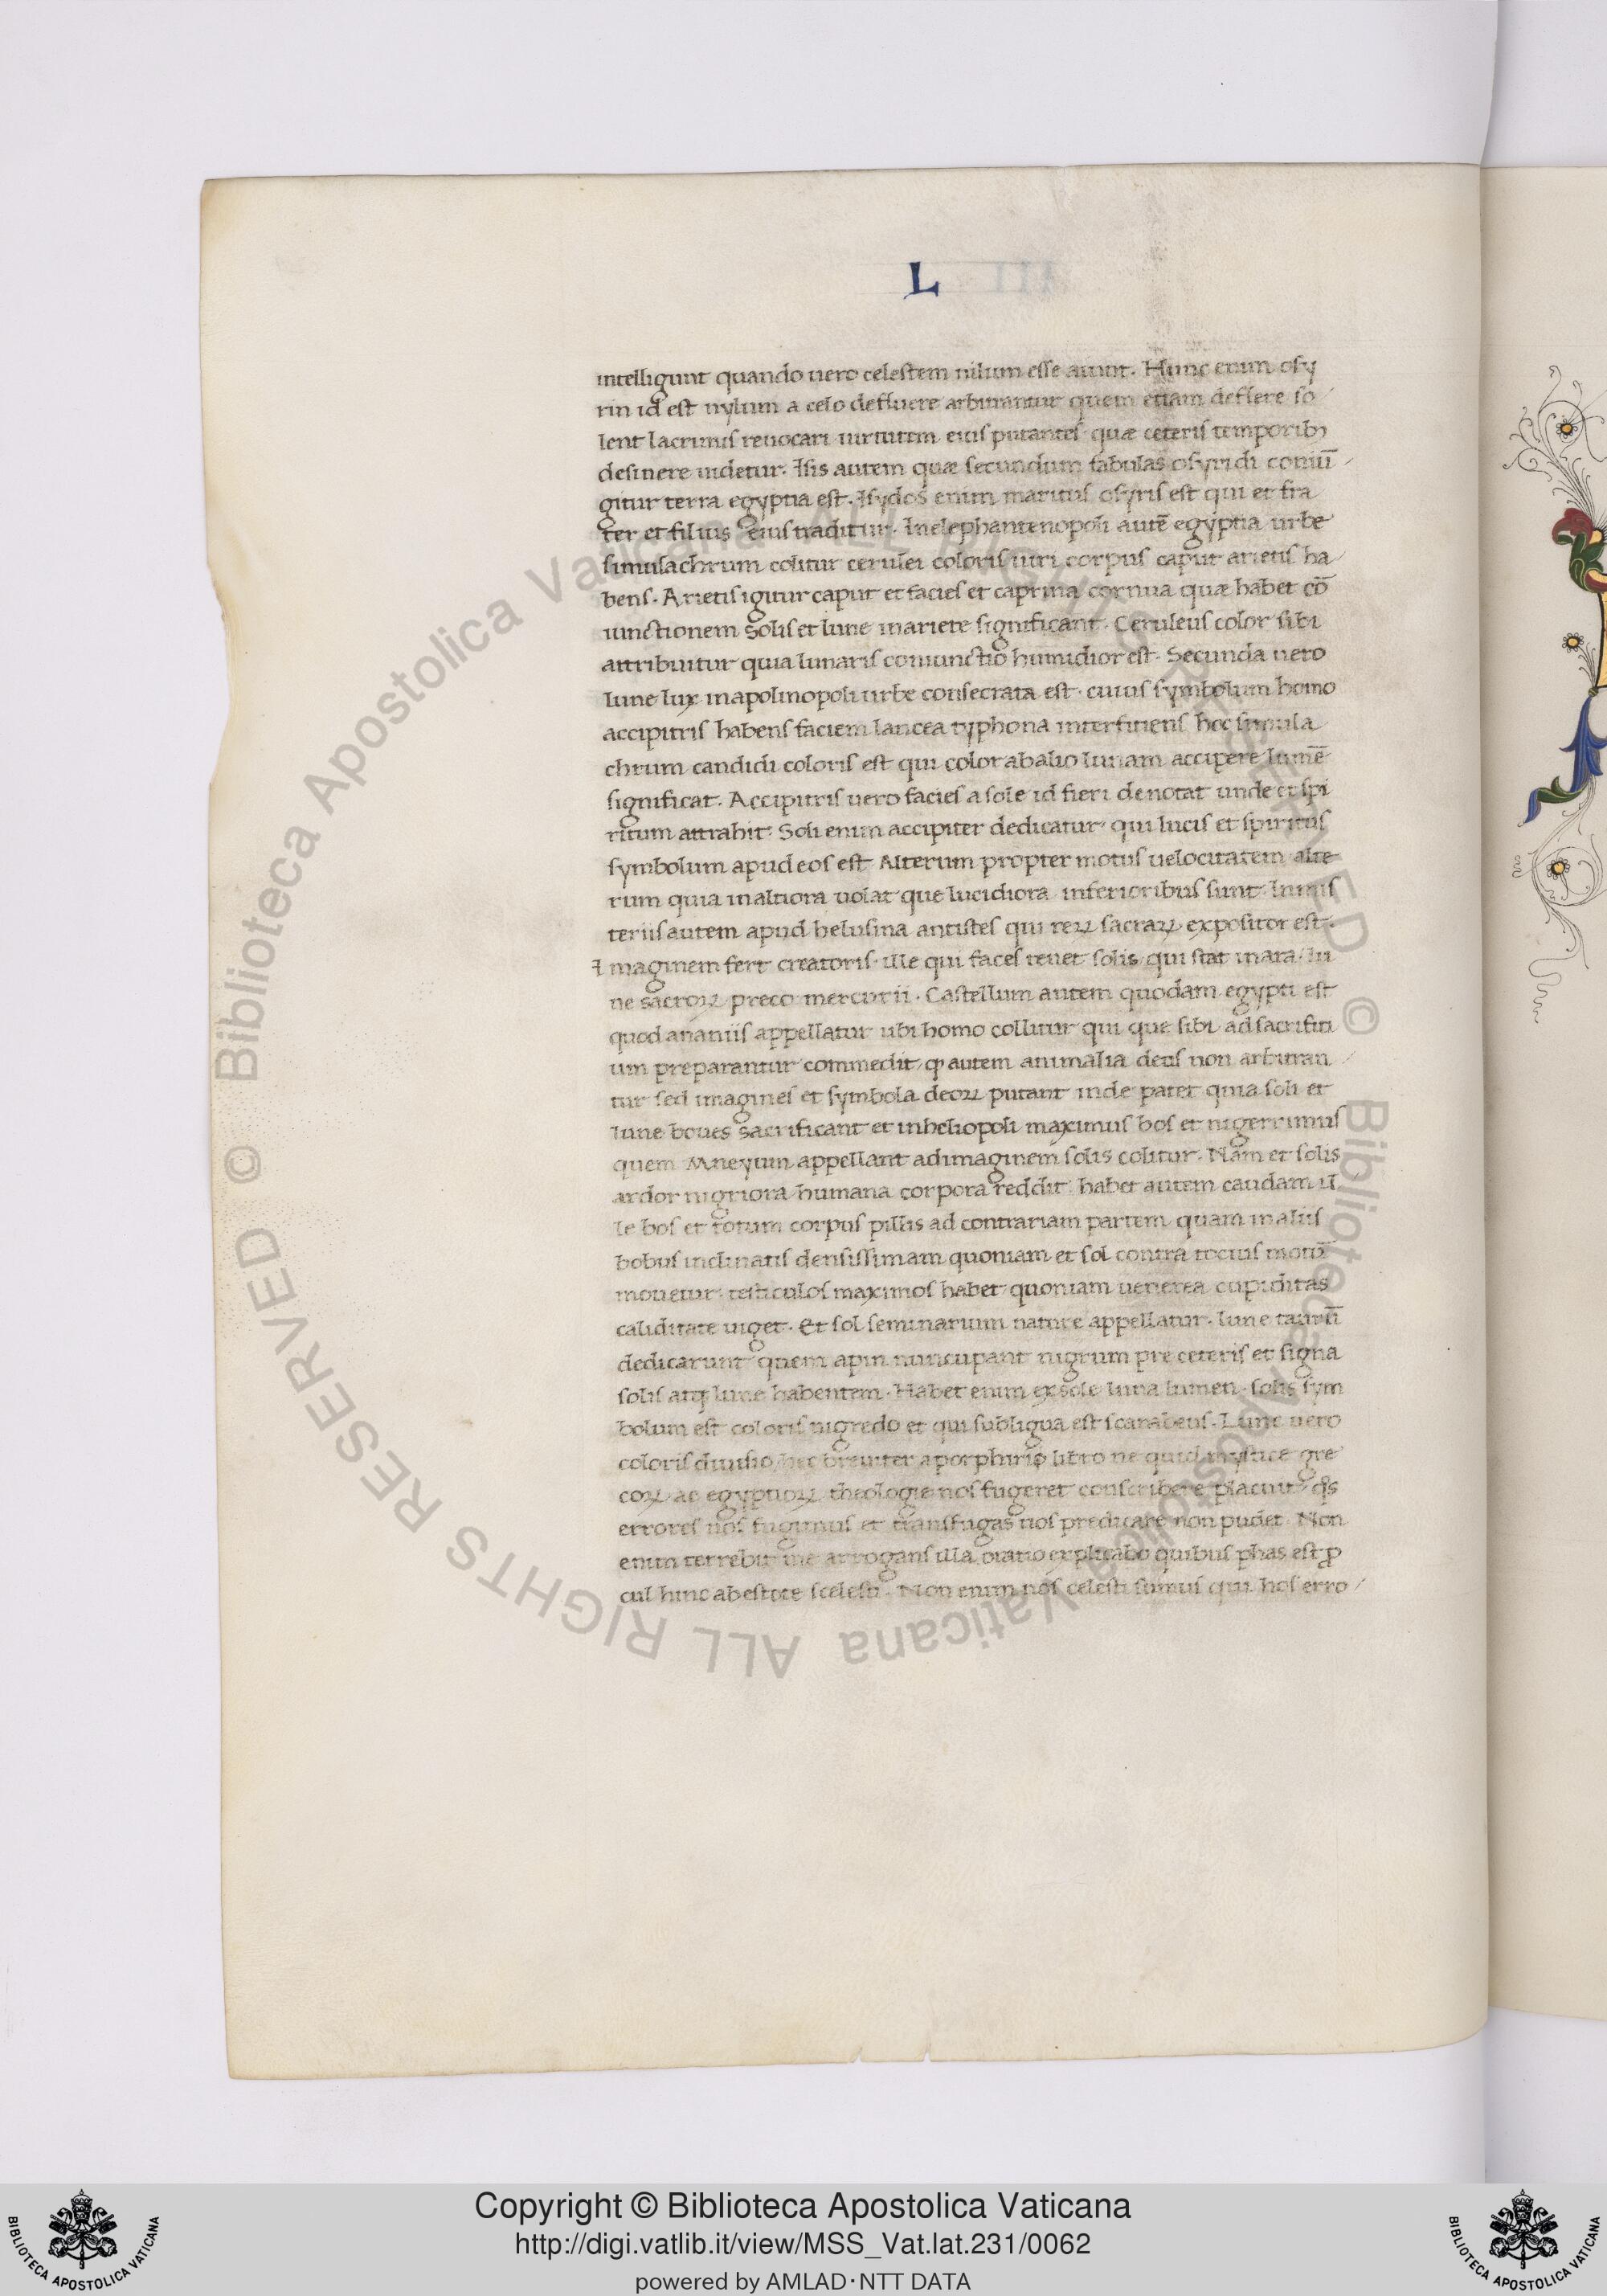 L
intelligunt quando uero celestem nilum esse aiunt. Hunc enim osy
rin id est nylum a celo defluere arbitrantur quem etiam deflere so
lent lacrimis reuocari uirtutem eius putantes quæ ceteris temporibꝫ
desinere uidetur. Isis autem quæ secundum fabulas osyridi coniu̅
gitur terra egyptia est. Isydos enim maritus osyris est qui et fra
ter et filius eius traditur. Inelephantenopoli aute̅ egyptia urbe
simulachrum colitur cerulei coloris uiri corpus caput arietis ha
bens. Arietis igitur caput et facies et caprina cornua quæ habet co̅
iunctionem solis et lune inariete significant. Ceruleus color sibi
attribuitur quia lunaris coniunctio humidior est. Secunda uero
lune lux inapolinopoli urbe consecrata est. cuius symbolum homo
accipitris habens faciem lancea typhona interfitiens hoc simula
chrum candidi coloris est qui color abalio lunam accipere lume̅
significat. Accipitris uero facies a sole id fieri denotat unde et spi
ritum attrahit. Soli enim accipiter dedicatur qui lucis et spiritus
symbolum apud eos est Alterum propter motus uelocitatem alte
rum quia inaltiora uolat que lucidiora inferioribus sunt. Inmis
teriis autem apud helusina antistes qui reꝝ sacraꝝ expositor est.
Imaginem fert creatoris. ille qui faces tenet solis qui stat inara lu
ne sacroꝝ preco mercurii. Castellum autem quodam egypti est
quod anamiis appellatur ubi homo collitur qui que sibi ad sacrifiti
um preparantur commedit ꝙ autem animalia deus non arbitran
tur sed imagines et symbola deoꝝ putant inde patet quia soli et
lune boues sacrificant et inheliopoli maximus bos et nigerrimus
quem Mneyum appellant adimaginem solis colitur. Nam et solis
ardor nigriora humana corpora reddit habet autem caudam il
le bos et totum corpus pillis ad contrariam partem quam inaliis
bobus inclinatis densissimam quoniam et sol contra tocius motu̅
mouetur. testiculos maximos habet quoniam uenerea cupiditas
caliditate uiget. Et sol seminarium nature appellatur. lune tauru̅
dedicarunt quem apin nuncupant nigrum pre ceteris et signa
solis atqꝫ lune habentem. Habet enim exsole luna lumen. solis sym
bolum est coloris nigredo et qui subligua est scarabeus. Lune uero
coloris diuisio hec breuiter aporphirio libro ne quid mystice gre
coꝝ ac egyptioꝝ theologie nos fugeret conscribere placuit qs
errores nos fugimus et transfugas nos predicare non pudet. Non
enim terrebit me arrogans illa oratio explicabo quibus phas est ꝓ
cul hinc abestote scelesti. Non enim nos celesti sumus qui hos erro
Copyright © Biblioteca Apostolica Vaticana
http://digi.vatlib.it/view/MSS_Vat.lat.231/0062
powered by AMLAD·NTT DATA